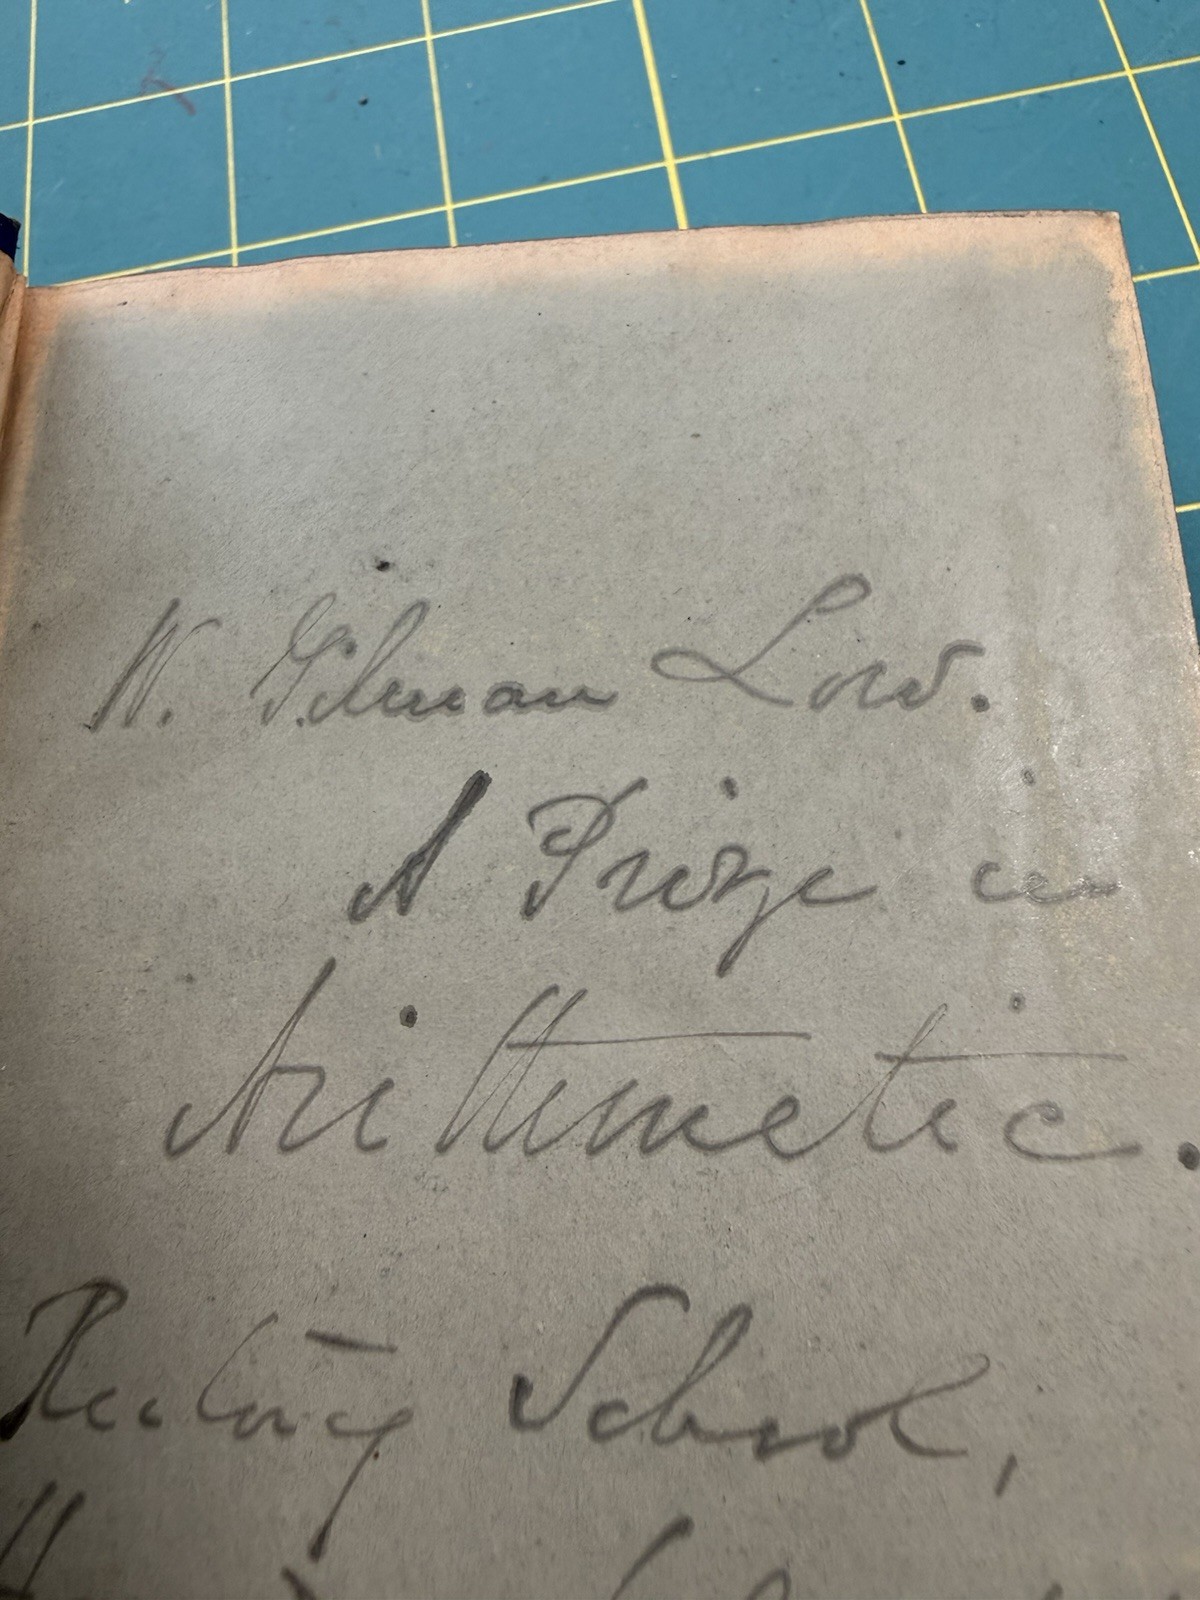 W. Gilman Low.
A Prize in
Arithmetic.
Rectory School,